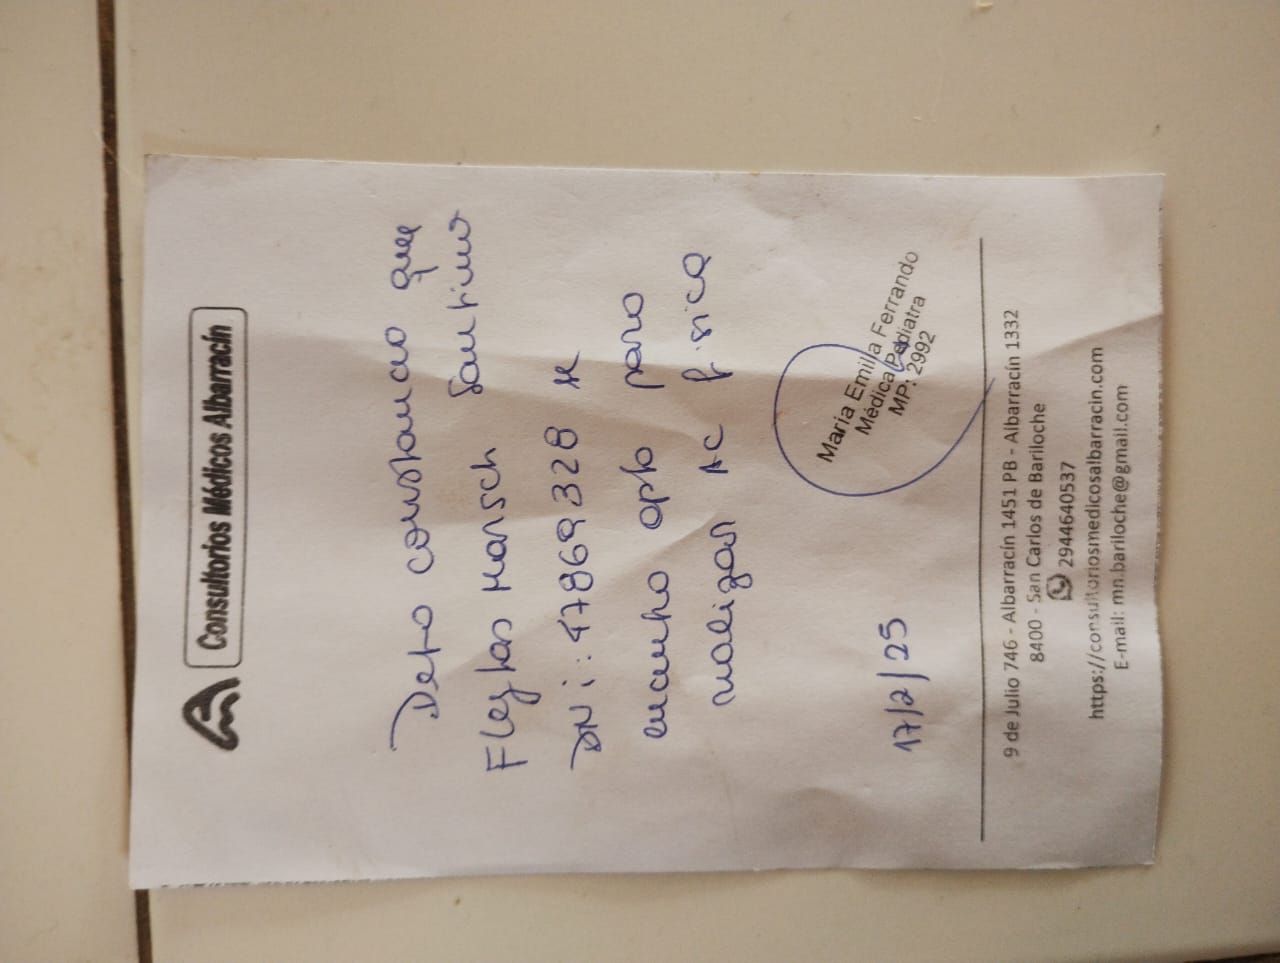 Consultorios Médicos Albarracín
Dejo constancia que
Flegtas Marsch Santino
DNi: 47869328 se
encuentra apto para
realizar AC física
Maria Emilia Ferrando
Médica Pediatra
MP: 2992
17/2/25
9 de Julio 746 - Albarracín 1451 PB - Albarracín 1332
8400 - San Carlos de Bariloche
2944640537
https://consultoriosmedicosalbarracin.com
E-mail: mn.bariloche@gmail.com